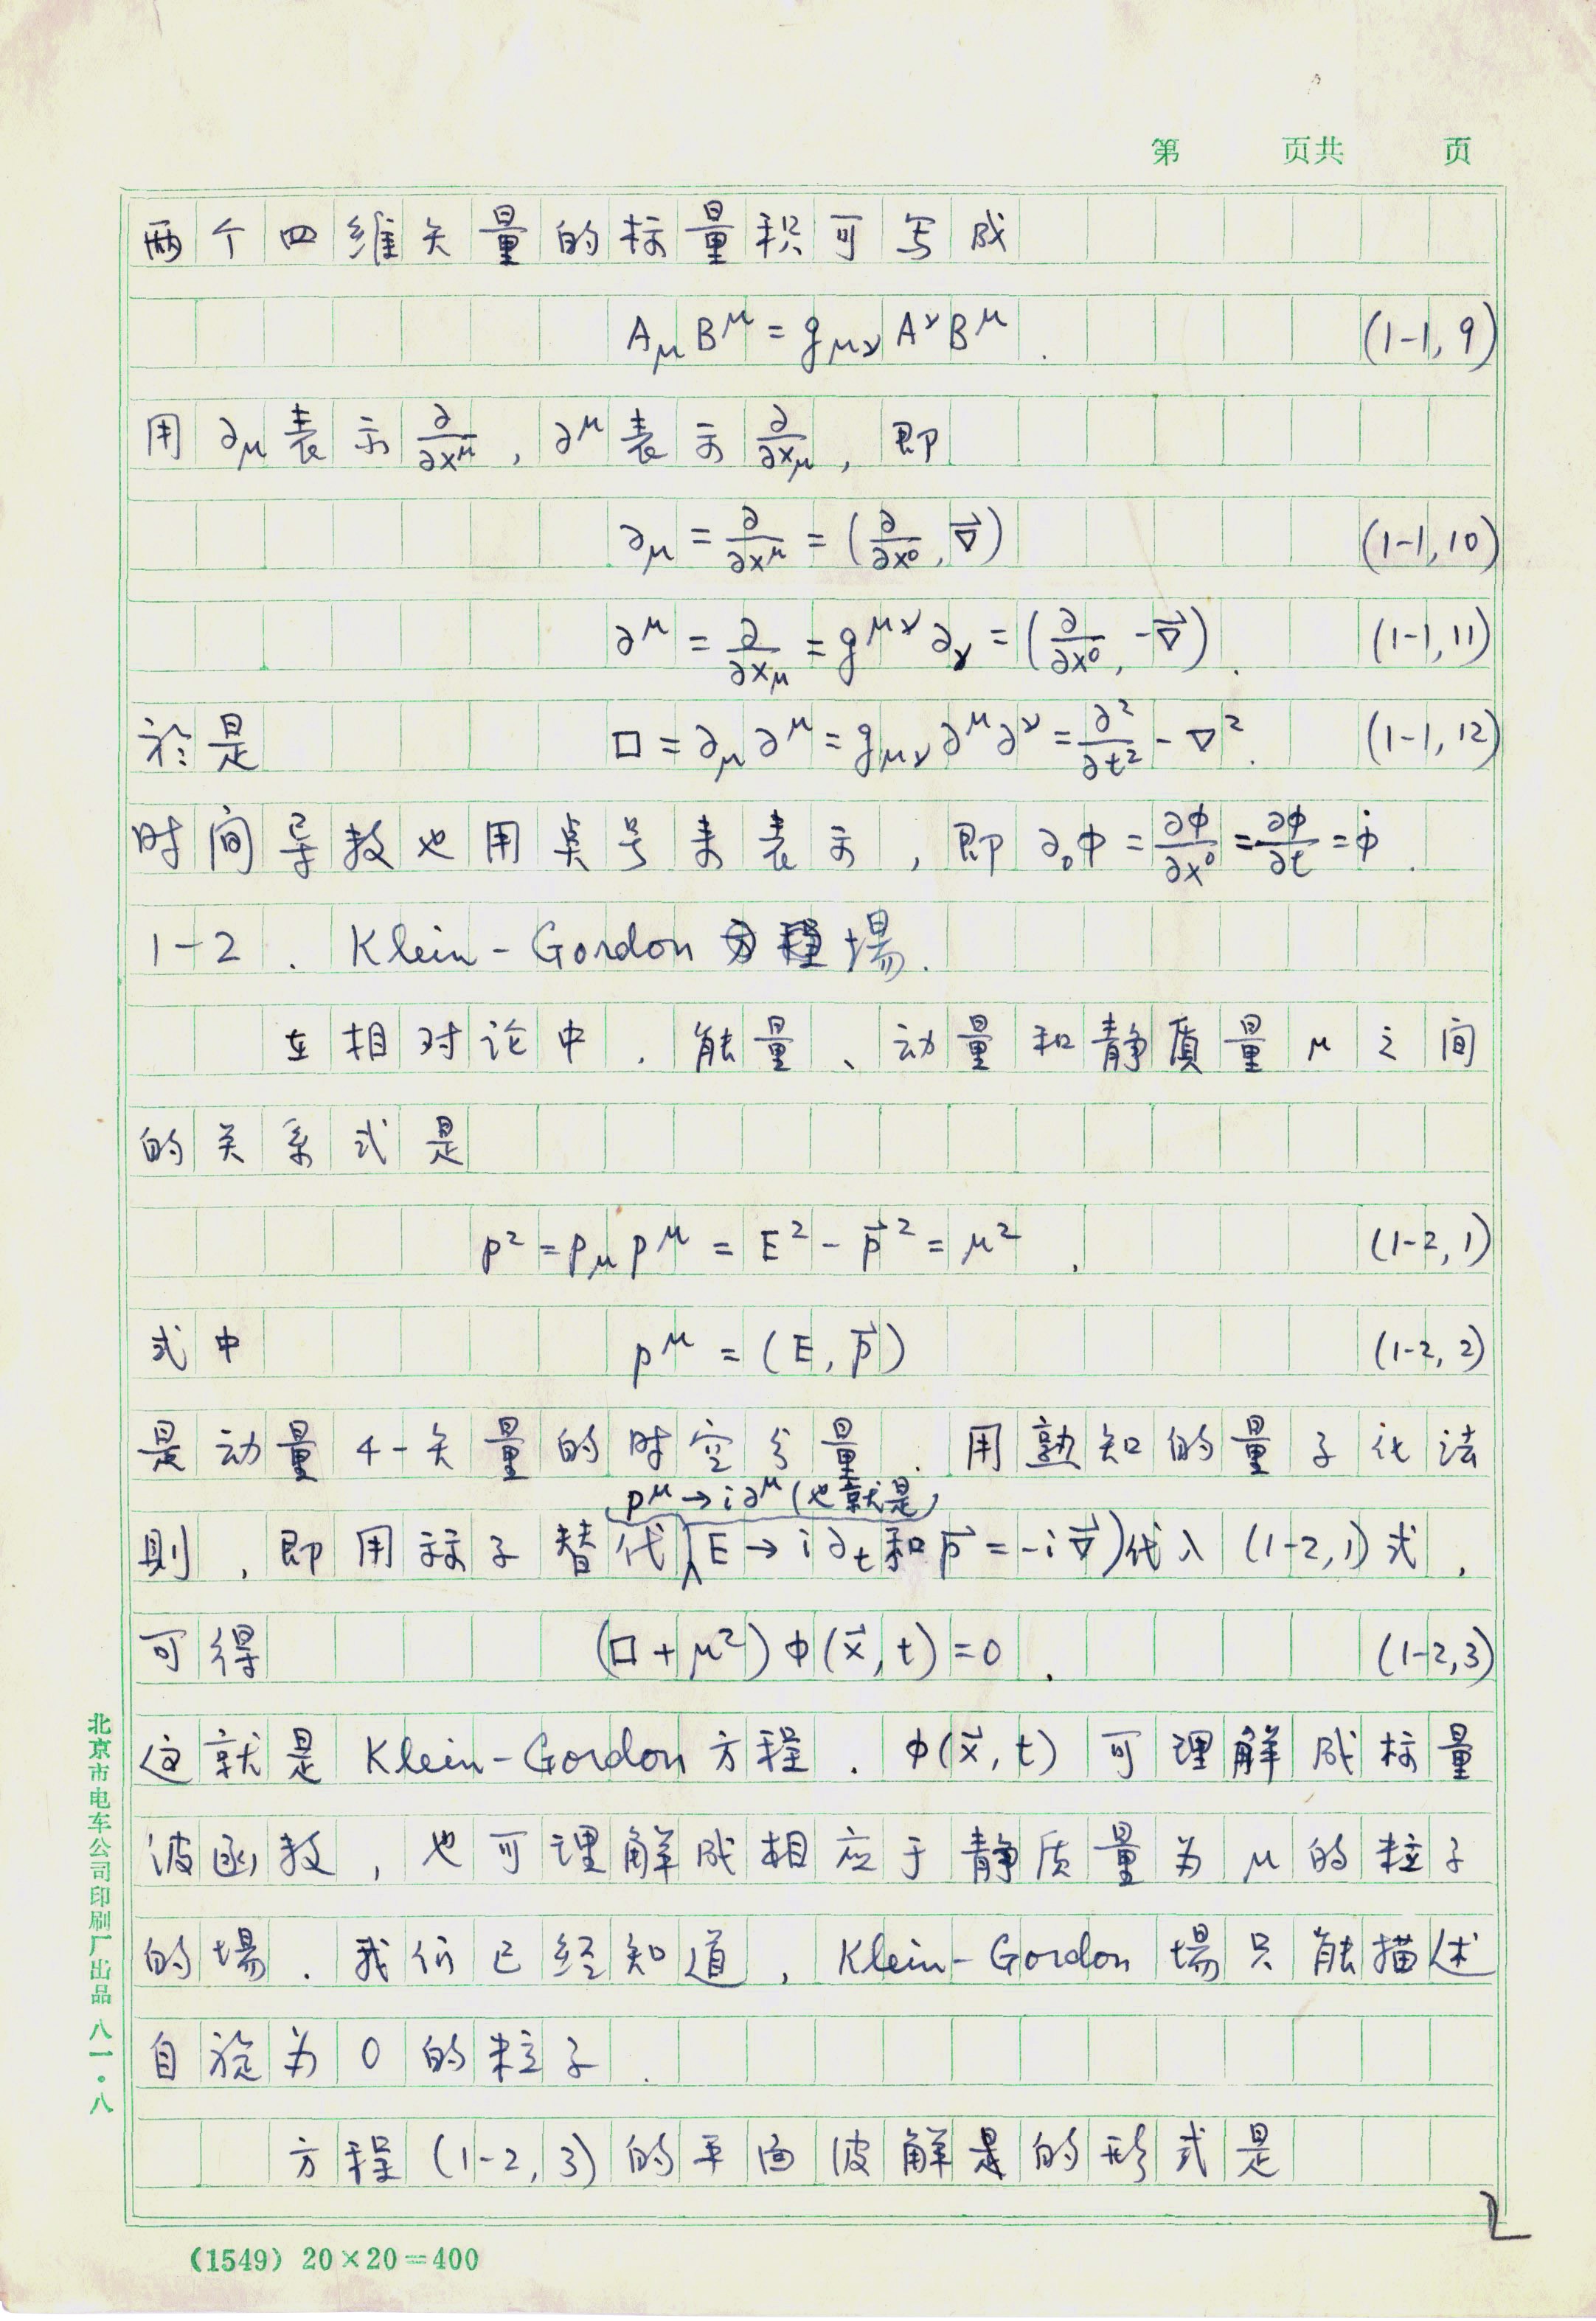 第 页共 页
两个四维矢量的标量积可写成
A_μ B^μ = g_μν A^ν B^μ . (1-1, 9)
用 ∂_μ 表示 ∂/∂x^μ , ∂^μ 表示 ∂/∂x_μ , 即
∂_μ = ∂/∂x^μ = (∂/∂x^0 , ∇⃗) (1-1, 10)
∂^μ = ∂/∂x_μ = g^μν ∂_ν = (∂/∂x^0 , -∇⃗) . (1-1, 11)
於是 □ = ∂_μ ∂^μ = g_μν ∂^μ ∂^ν = ∂²/∂t² - ∇² . (1-1, 12)
时间导数也用点号来表示 , 即 ∂_0 φ = ∂φ/∂x^0 = ∂φ/∂t = φ̇ .
1-2 . Klein-Gordon 場 .
在相对论中 , 能量 、 动量和静质量 μ 之间
的关系式是
p² = p_μ p^μ = E² - p⃗² = μ² , (1-2, 1)
式中 p^μ = (E, p⃗) (1-2, 2)
是动量 4-矢量的时空分量 . 用熟知的量子化法
p^μ → i∂^μ (也就是)
则 , 即用算子替代 (E → i∂_t 和 p⃗ = -i∇⃗) 代入 (1-2, 1) 式 ,
可得 (□ + μ²) φ(x⃗, t) = 0 . (1-2, 3)
这就是 Klein-Gordon 方程 . φ(x⃗, t) 可理解成标量
波函数 , 也可理解成相应于静质量为 μ 的粒子
的場 . 我们已经知道 , Klein-Gordon 場只能描述
自旋为 0 的粒子 .
方程 (1-2, 3) 的平面波解是的形式是
2
北京市电车公司印刷厂出品 八一·八
(1549) 20×20=400